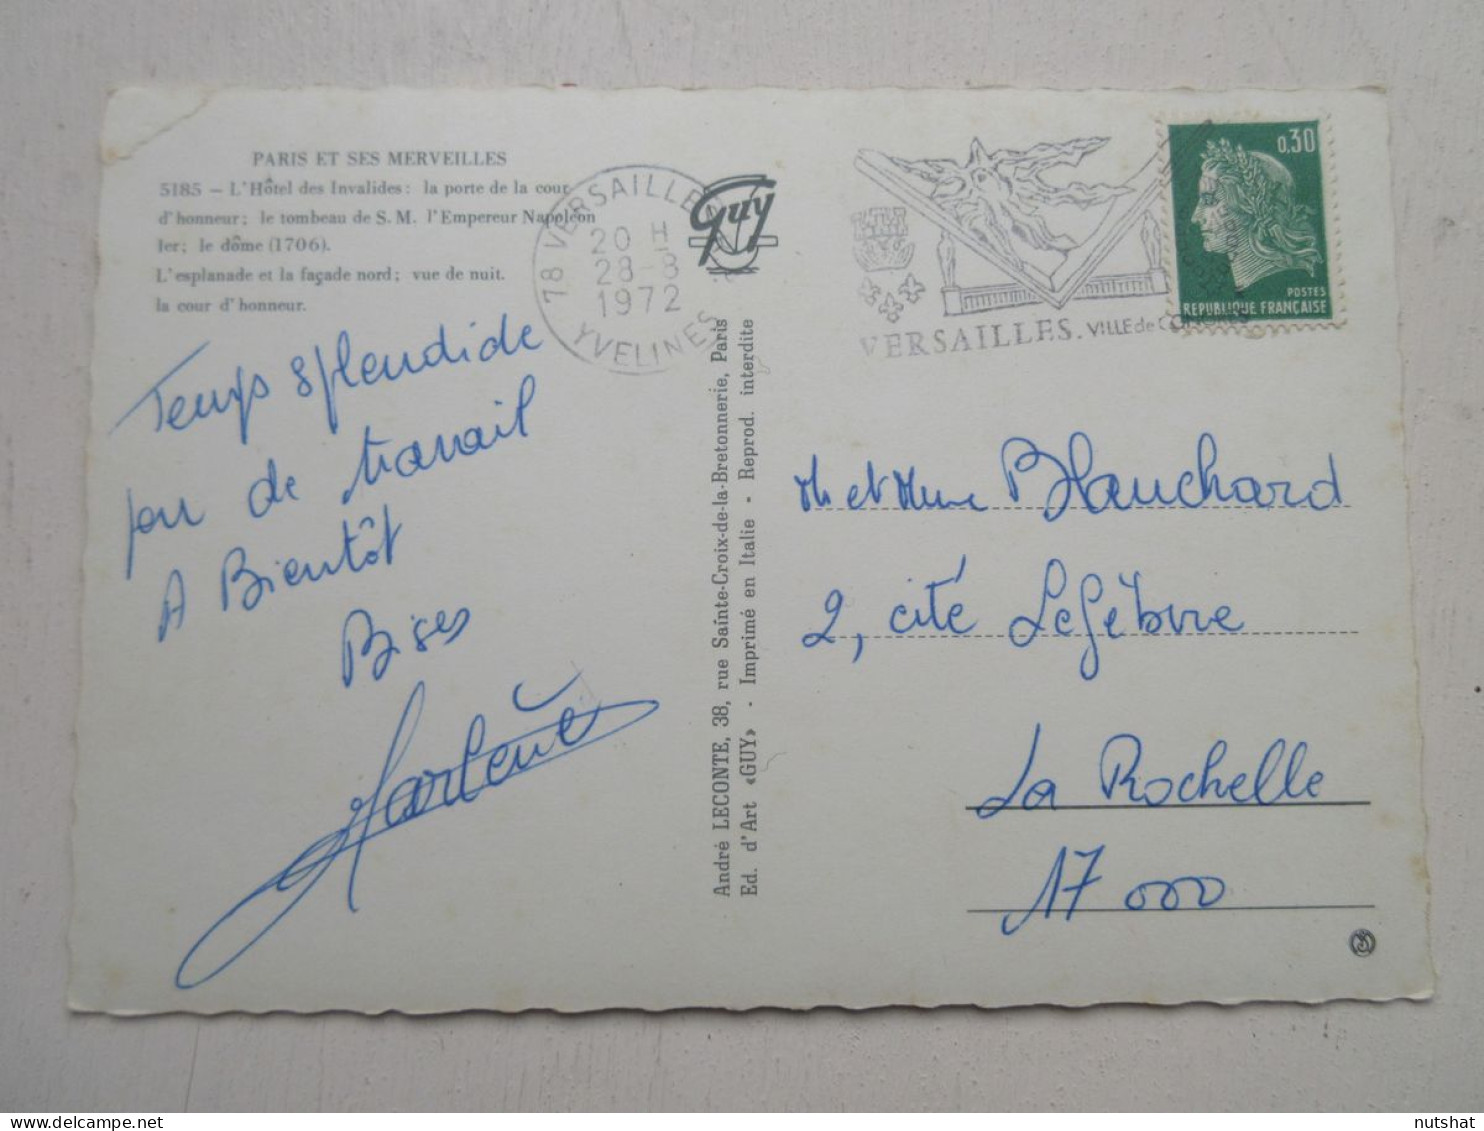 PARIS ET SES MERVEILLES
5185 – L'Hôtel des Invalides: la porte de la cour
d'honneur; le tombeau de S. M. l'Empereur Napoléon
Ier; le dôme (1706).
L'esplanade et la façade nord; vue de nuit.
la cour d'honneur.
Temps splendide
peu de travail
A Bientôt
Bises
78 VERSAILLES
20 H
28-8
1972
YVELINES
Guy
André LECONTE, 38, rue Sainte-Croix-de-la-Bretonnerie, Paris
Ed. d'Art «GUY» - Imprimé en Italie - Reprod. interdite
VERSAILLES. VILLE de
0,30
POSTES
REPUBLIQUE FRANÇAISE
Mr et Mme Blanchard
2, cité Lefèbvre
La Rochelle
17 000
nutshat